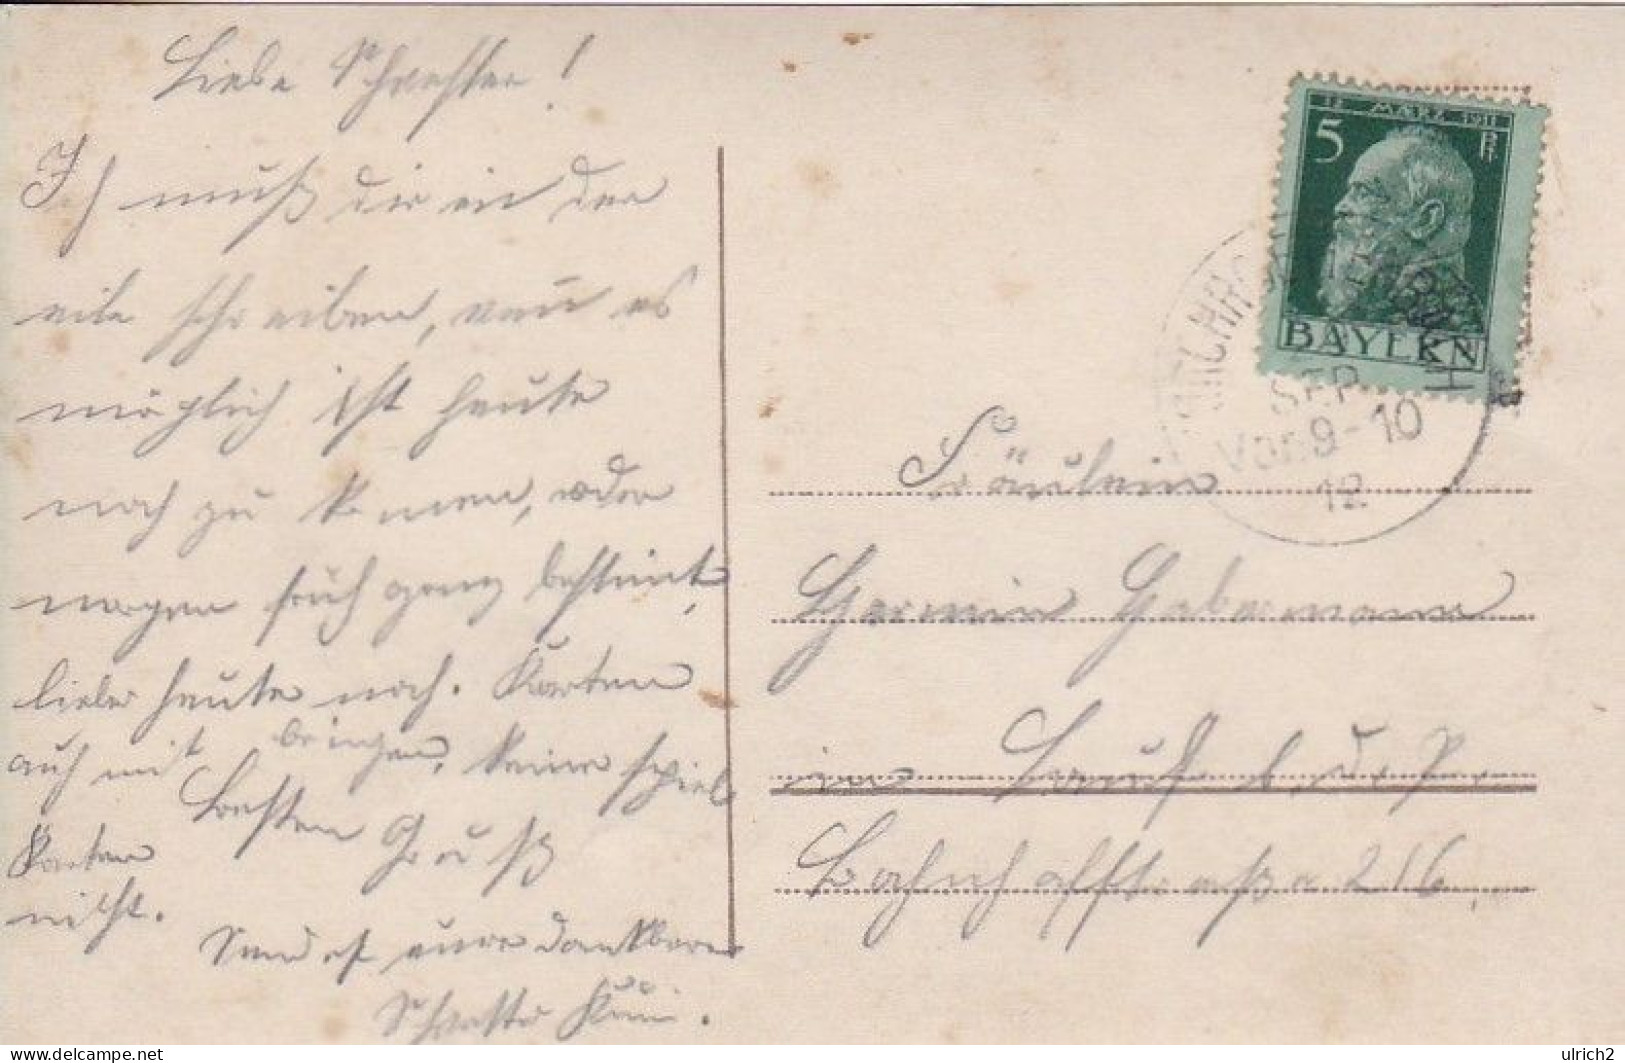 Liebe Schwester!
Ich muß dir in der
eile schreiben, wenn es
möglich ist heute
noch zu komen, oder
morgen früh ganz bestimt,
lieber heute noch. Karten
auch mit bringen, keine spiel
Karten
nicht.
besten Gruß
Sendet eure dankbare
Schwester Kuni.
12 MÄRZ 1911
5 Pf
BAYERN
SEP
Vor. 9-10
12
Fräulein
Hermin Habermann
in Lauf b. d. P.
Bahnhoffstraße 216.
ulrich2
delcampe.net